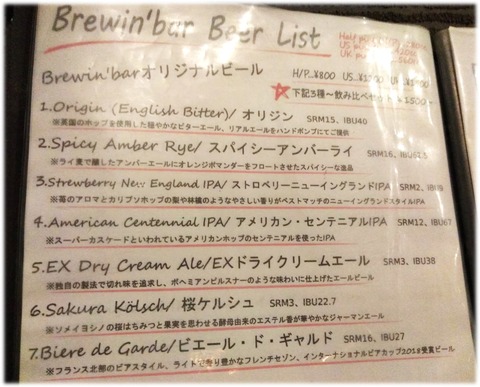 Brewin'bar Beer List
Brewin'barオリジナルビール H/P...¥800 US...
下記3種〜飲み比べセット ¥1500-
1.Origin (English Bitter)/ オリジン SRM15、IBU40
※英国のホップを使用した穏やかなビターエール、リアルエールをハンドポンプにてご提供
2.Spicy Amber Rye/ スパイシーアンバーライ SRM16、
※ライ麦で醸したアンバーエールにオレンジポマンダーをフロートさせたスパイシーな逸品
3.Strewberry New England IPA/ ストロベリーニューイングランドIPA SRM2、
※苺のアロマとカリプソホップの梨や林檎のようなやさしい香りがベストマッチのニューイングランドスタイルIPA
4.American Centennial IPA/ アメリカン・センテニアルIPA SRM12、IBU67
※スーパーカスケードといわれているアメリカンホップのセンテニアルを使ったIPA
5.EX Dry Cream Ale/EXドライクリームエール SRM3、IBU38
※独自の製法で切れ味を追求し、ボヘミアンピルスナーのような味わいに仕上げたエールビール
6.Sakura Kölsch/ 桜ケルシュ SRM3、IBU22.7
※ソメイヨシノの桜はちみつと果実を思わせる酵母由来のエステル香が華やかなジャーマンエール
7.Biere de Garde/ビエール・ド・ギャルド SRM16、IBU27
※フランス北部のビアスタイル、ライトで香り豊かなフレンチセゾン、インターナショナルビアカップ2018受賞ビール